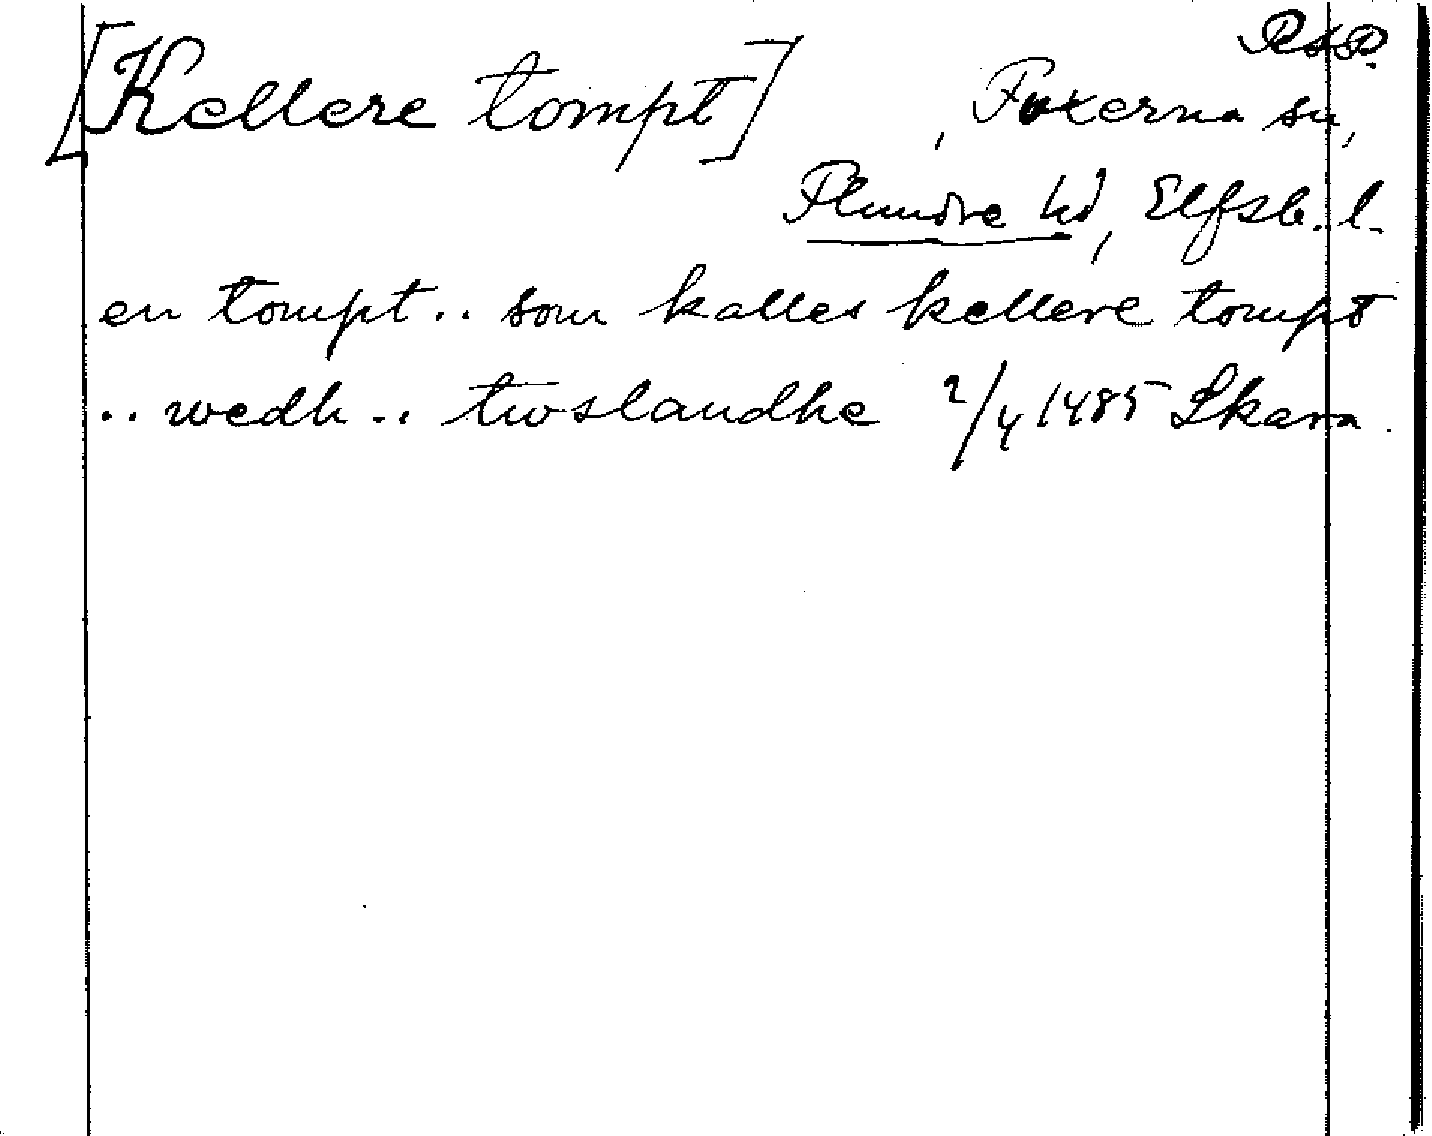 RAP.
[Kellere tompt] , Fuxerna sn,
Flundre hd, Elfsb. l.
en tompt .. som kalles kellere tompt
.. wedh .. twslandhe 2/4 1485 Skara.